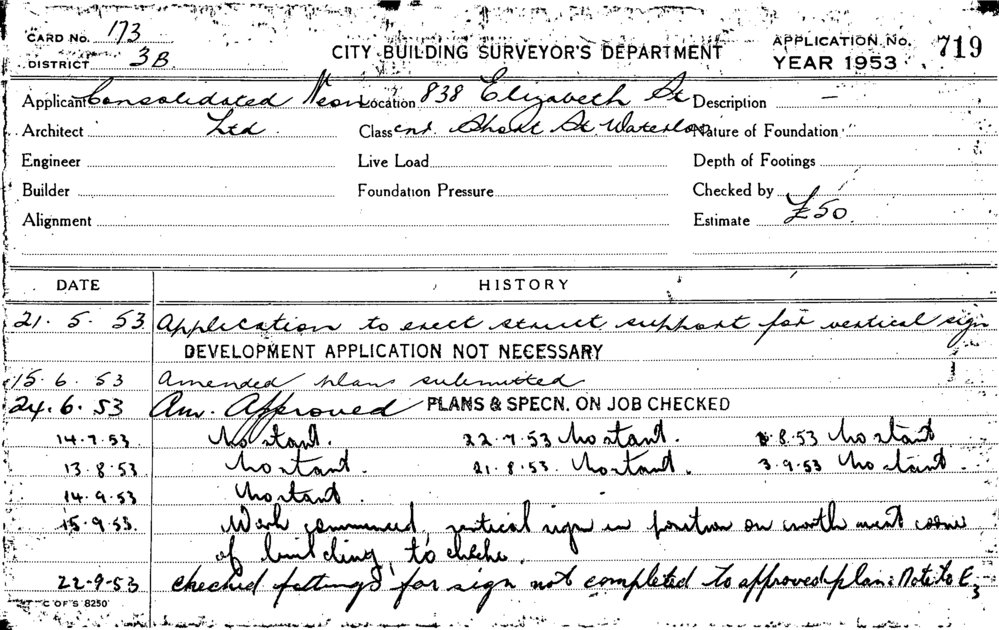 CARD NO. 173
DISTRICT 3B
CITY BUILDING SURVEYOR'S DEPARTMENT
APPLICATION No. 719
YEAR 1953
Applicant Consolidated Neon Location 838 Elizabeth St Description —
Architect Ltd Class cnr. Short St Waterloo Nature of Foundation "
Engineer Live Load Depth of Footings
Builder Foundation Pressure Checked by
Alignment Estimate £50
DATE HISTORY
21. 5. 53 Application to erect struct support for vertical sign
DEVELOPMENT APPLICATION NOT NECESSARY
15. 6. 53 Amended plans submitted
24. 6. 53 Am. Approved PLANS & SPECN. ON JOB CHECKED
14.7.53 No start. 22.7.53 No start. 8.53 No start
13.8.53 No start. 21.8.53. No start. 3.9.53 No start.
14.9.53 No start.
15.9.53. Work commenced, vertical sign in position on north west corner
of building, to check.
22-9-53 checked fittings for sign not completed to approved plan: Note to E3
C OF S 8250